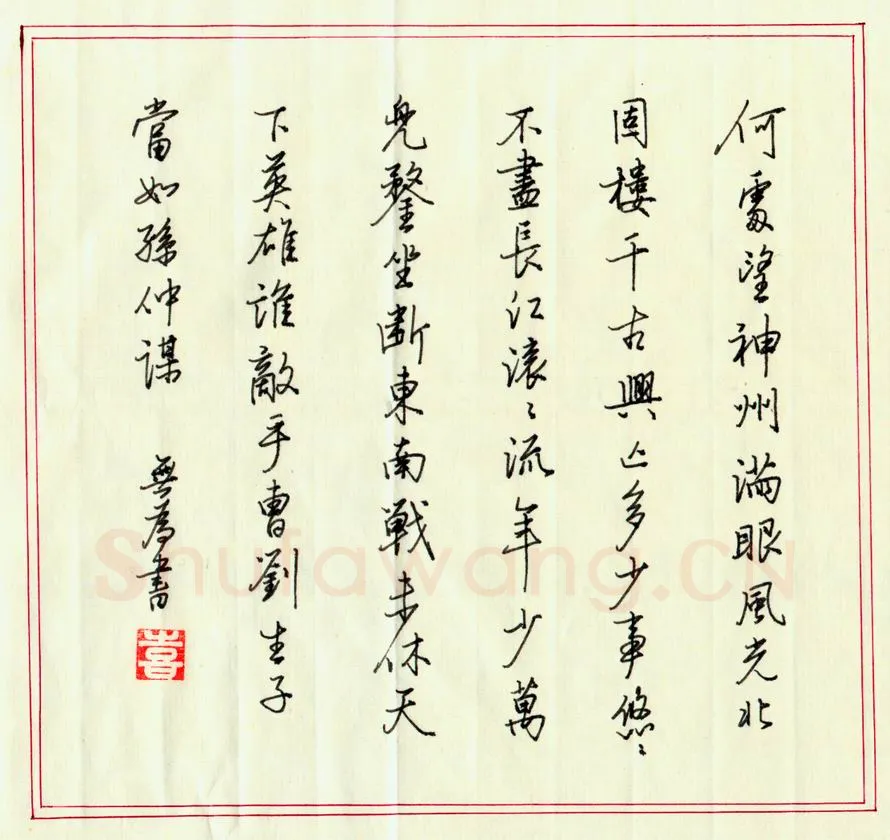 何處望神州滿眼風光北
固樓千古興亡多少事悠〻
不盡長江滚〻流年少萬
兜鍪坐断東南戰未休天
下英雄誰敵手曹劉生子
當如孫仲謀 無為書
喜
Shufawang.CN